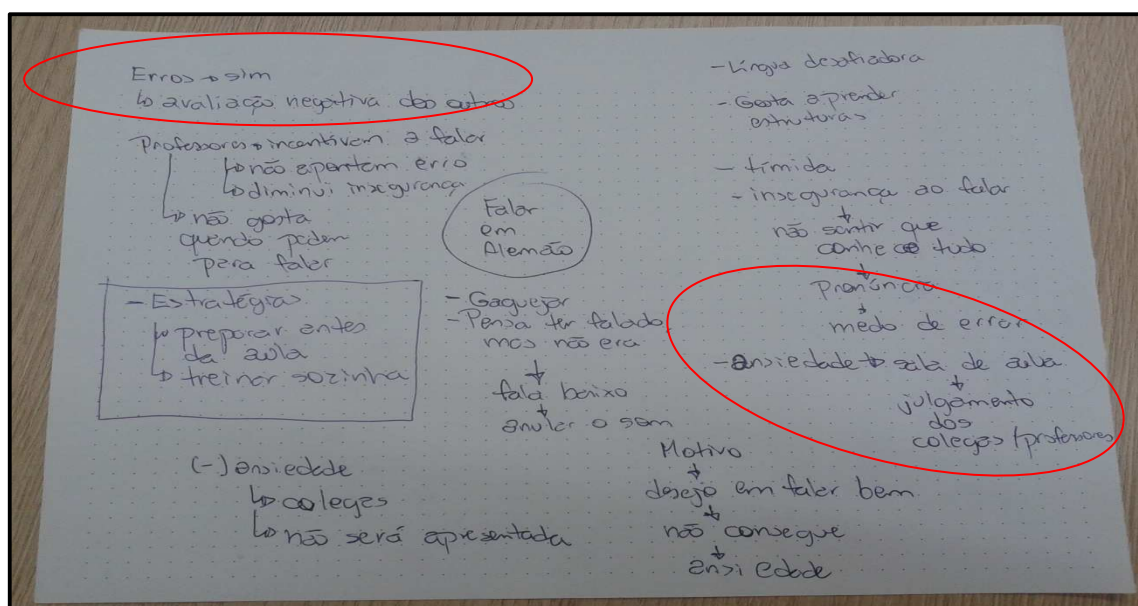 Erros → sim
↳ avaliação negativa dos outros
Professores → incentivam a falar
↳ não apontam erro
↳ diminui insegurança
↳ não gosta
quando pedem
para falar
- Estratégias
↳ preparar antes
da aula
↳ treinar sozinha
(-) ansiedade
↳ colegas
↳ não será apresentada
Falar
em
Alemão
- Gaguejar
- Pensa ter falado,
mas não era
↓
fala baixo
↓
anular o som
- Língua desafiadora
- Gosta aprender
estruturas
- tímida
- insegurança ao falar
↓
não sentir que
conhece tudo
↓
Pronúncia
↓
medo de errar
- ansiedade → sala de aula
↓
julgamento
dos
colegas/professores
Motivo
↓
desejo em falar bem
↓
não consegue
↓
ansiedade